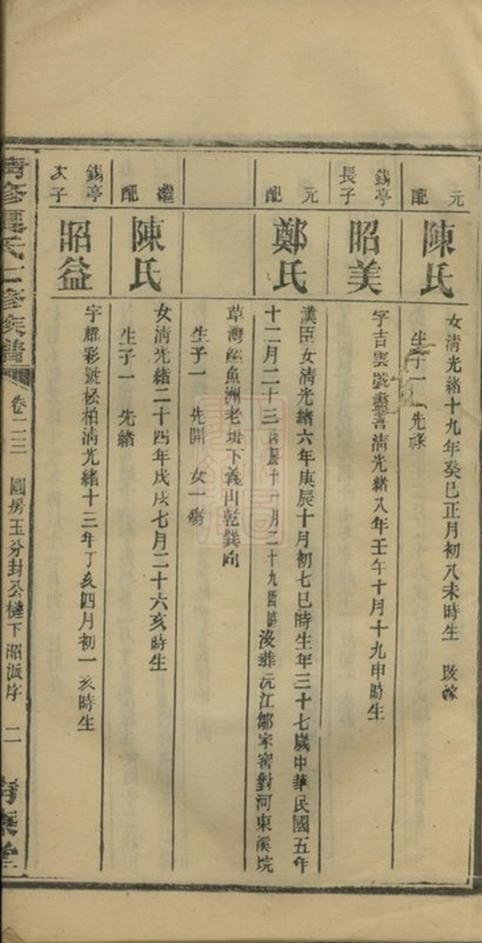 元配
陳氏
女清光緒十九年癸巳正月初八未時生 改嫁
生子一 先祿
錫亭長子
昭美
字吉雲號 善清光緒八年壬午十月十九申時生
元配
鄭氏
漢臣女清光緒六年庚辰十月初七巳時生年三十七歲中華民國五年
十二月二十三 十一月二十九 時沒葬沅江鄒家窖對河東溪垸
草灣 魚洲老堤下義山乾巽向
生子一 先開 女一殤
繼配
陳氏
女清光緒二十四年戊戌七月二十六亥時生
生子一 先緒
錫亭次子
昭益
字耀彩號松柏清光緒十三年丁亥四月初一亥時生
修 氏 修族譜
卷二三 圓房玉分封公 下昭派序 二
堂